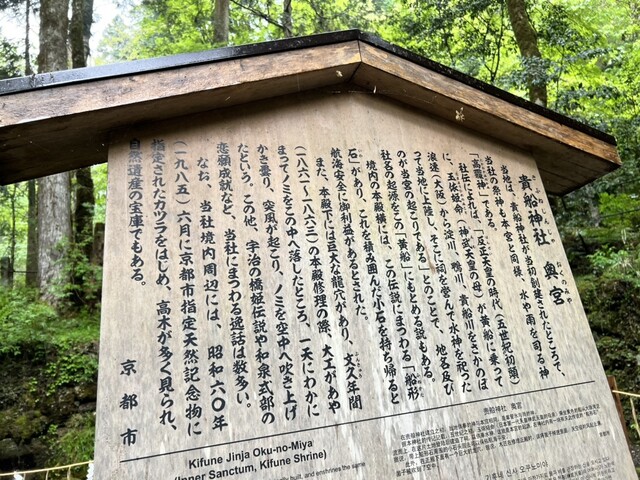 貴船神社 奥宮
きふねじんじゃ おくのみや
当地は、貴船神社が当初創建されたところで、
当社の祭神も本宮と同様、水や雨を司る神
「高龗神」である。
社伝によれば、「反正天皇の時代（五世紀初頭）
に、玉依姫命（神武天皇の母）が黄船に乗って
浪速（大阪）から淀川、鴨川、貴船川をさかのぼ
って当地に上陸し、そこに祠を営んで水神を祀った
のが当宮の起こりである」とのことで、地名及び
社名の起源をこの「黄船」にもとめる説もある。
境内の本殿横には、この伝説にまつわる「船形
石」があり、これを積み囲んだ小石を持ち帰ると
航海安全に御利益があるとされた。
また、本殿下には巨大な龍穴があり、文久年間
（一八六一～一八六三）の本殿修理の際、大工があや
まってノミをこの中へ落したところ、一天にわかに
かき曇り、突風が起こり、ノミを空中へ吹き上げ
たという。この他、宇治の橋姫伝説や和泉式部の
恋願成就など、当社にまつわる逸話は数多い。
なお、当社境内周辺には、昭和六〇年
（一九八五）六月に京都市指定天然記念物に
指定されたカツラをはじめ、高木が多く見られ、
自然遺産の宝庫でもある。
京都市
Kifune Jinja Oku-no-Miya
(Inner Sanctum, Kifune Shrine)
贵船神社 奥宫
기후네 신사 오쿠노미야